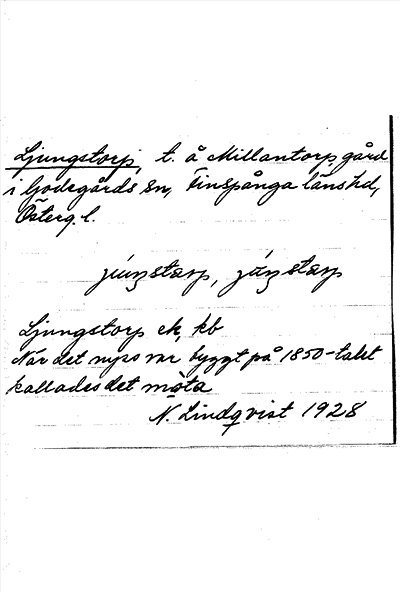 Ljungstorp, t. å Millantorp, gård
i Godegårds sn, Finspånga länshd,
Österg. l.
júŋstarp, jáŋstarp
Ljungstorp ek, kb
När det nyss var byggt på 1850-talet
kallades det måta
N. Lindqvist 1928